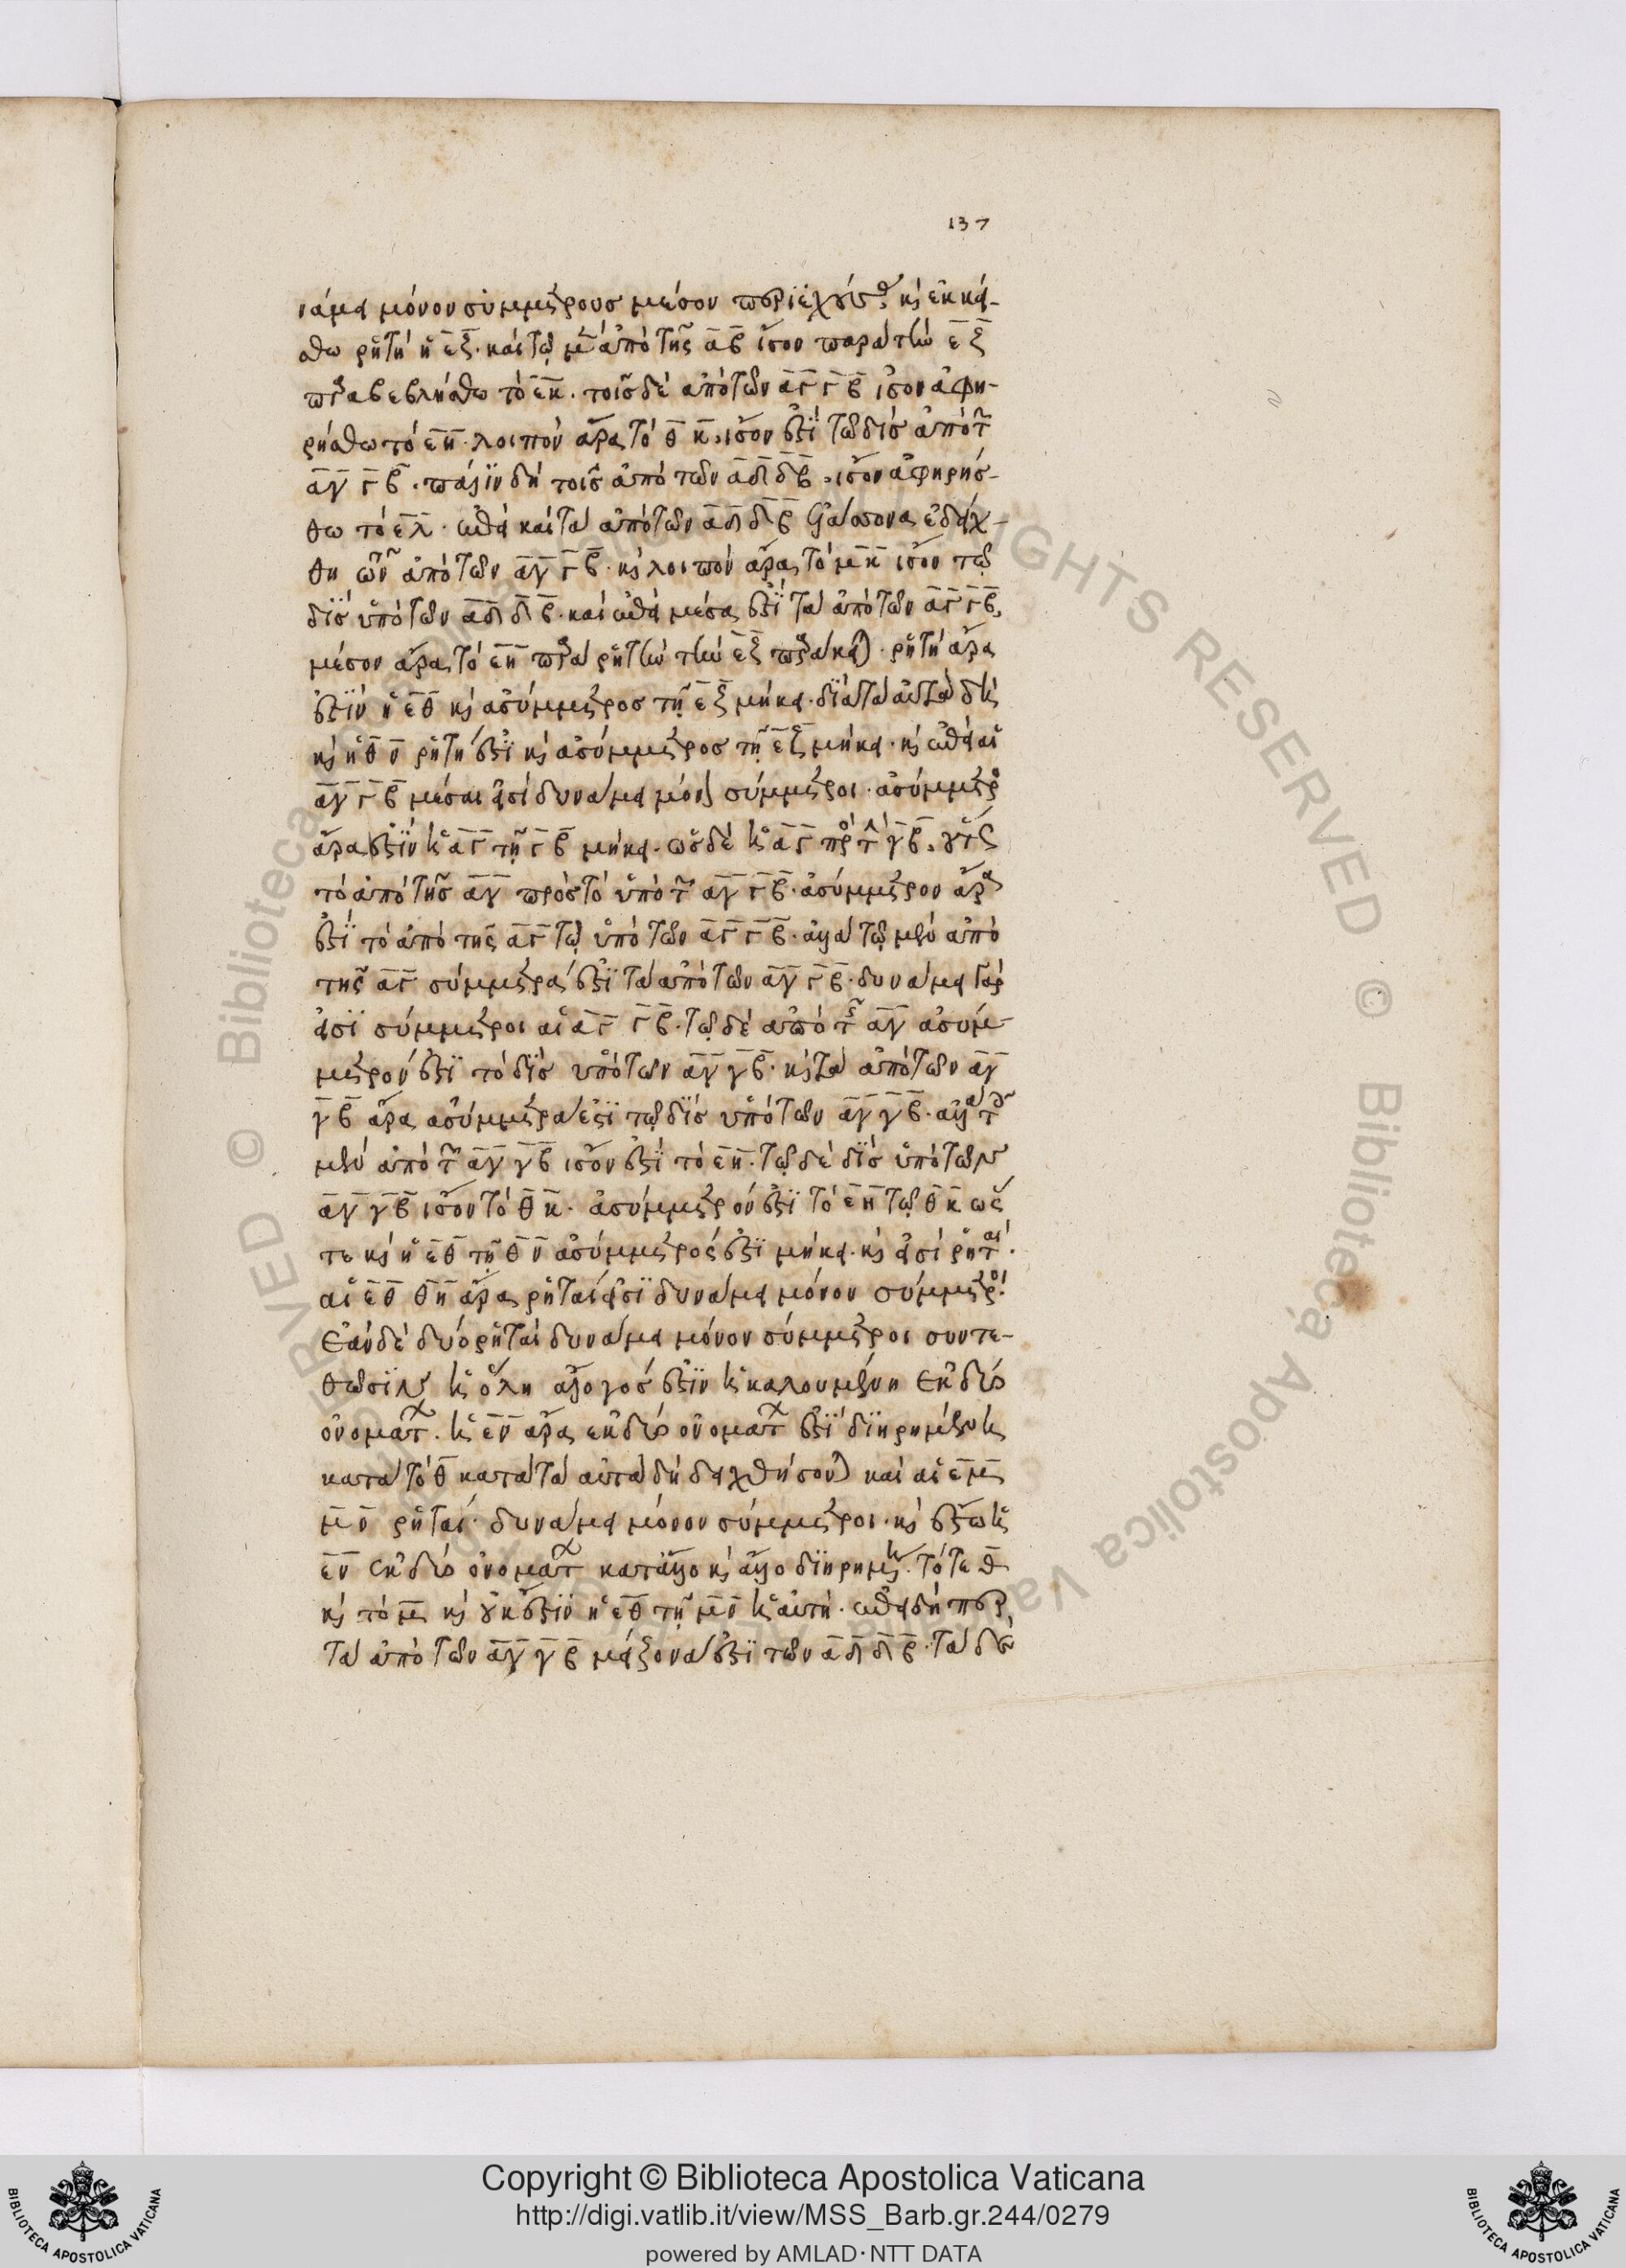 137
νάμει μόνον συμμέτρους μέσον περιεχούσας κ(αὶ) ἐκκεί-
σθω ῥητὴ ἡ ε̅ξ̅. καὶ τῷ μ(ὲν) ἀπὸ τῆς α̅β̅ ἴσον παρὰ τὴν ε̅ξ̅
παραβεβλήσθω τὸ ε̅κ̅. τοῖς δὲ ἀπὸ τῶν α̅γ̅ γ̅β̅ ἴσον ἀφη-
ρήσθω τὸ ε̅η̅. λοιπὸν ἄρα τὸ θ̅κ̅, ἴσον ἐστὶ τῷ δὶς ἀπὸ τ(ῶν)
α̅γ̅ γ̅β̅. πάλιν δὴ τοῖς ἀπὸ τῶν α̅δ̅ δ̅β̅, ἴσον ἀφηρήσ-
θω τὸ ε̅λ̅. ἐπεὶ καὶ τὰ ἀπὸ τῶν α̅δ̅ δ̅β̅ ἐλάσσονα ἐδείχ-
θη τῶν ἀπὸ τῶν α̅γ̅ γ̅β̅. κ(αὶ) λοιπὸν ἄρα τὸ μ̅κ̅ ἴσον τῷ
δὶς ὑπὸ τῶν α̅δ̅ δ̅β̅. καὶ ἐπεὶ μέσα ἐστὶ τὰ ἀπὸ τῶν α̅γ̅ γ̅β̅,
μέσον ἄρα τὸ ε̅η̅ παρὰ ῥητὴν τὴν ε̅ξ̅ παράκει(ται). ῥητὴ ἄρα
ἐστὶν ἡ ε̅θ̅ κ(αὶ) ἀσύμμετρος τῇ ε̅ξ̅ μήκει. διὰ τὰ αὐτὰ δὴ
κ(αὶ) ἡ θ̅ν̅ ῥητή ἐστι κ(αὶ) ἀσύμμετρος τῇ ε̅ξ̅ μήκει. κ(αὶ) ἐπεὶ αἱ
α̅γ̅ γ̅β̅ μέσαι εἰσὶ δυνάμει μόνον σύμμετροι. ἀσύμμετρος
ἄρα ἐστὶν ἡ α̅γ̅ τῇ γ̅β̅ μήκει. ὡς δὲ ἡ α̅γ̅ πρὸς τὴν γ̅β̅, οὕτως
τὸ ἀπὸ τῆς α̅γ̅ πρὸς τὸ ὑπὸ τ(ῶν) α̅γ̅ γ̅β̅. ἀσύμμετρον ἄρα
ἐστὶ τὸ ἀπὸ τῆς α̅γ̅ τῷ ὑπὸ τῶν α̅γ̅ γ̅β̅. ἀλλὰ τῷ μὲν ἀπὸ
τῆς α̅γ̅ σύμμετρά ἐστι τὰ ἀπὸ τῶν α̅γ̅ γ̅β̅. δυνάμει γάρ
εἰσι σύμμετροι αἱ α̅γ̅ γ̅β̅. τῷ δὲ ἀπὸ τῆς α̅γ̅ ἀσύμ-
μετρόν ἐστι τὸ δὶς ὑπὸ τῶν α̅γ̅ γ̅β̅. κ(αὶ) τὰ ἀπὸ τῶν α̅γ̅
γ̅β̅ ἄρα ἀσύμμετρά ἐστι τῷ δὶς ὑπὸ τῶν α̅γ̅ γ̅β̅. ἀλλὰ τοῖς
μὲν ἀπὸ τ(ῶν) α̅γ̅ γ̅β̅ ἴσον ἐστὶ τὸ ε̅η̅. τῷ δὲ δὶς ὑπὸ τῶν
α̅γ̅ γ̅β̅ ἴσον τὸ θ̅κ̅. ἀσύμμετρόν ἐστι τὸ ε̅η̅ τῷ θ̅κ̅ ὥσ
τε κ(αὶ) ἡ ε̅θ̅ τῇ θ̅ν̅ ἀσύμμετρός ἐστι μήκει. κ(αὶ) εἰσὶ ῥηταί.
αἱ ε̅θ̅ θ̅η̅ ἄρα ῥηταί εἰσι δυνάμει μόνον σύμμετροι.
Ἐὰν δὲ δύο ῥηταὶ δυνάμει μόνον σύμμετροι συντε-
θῶσιν ἡ ὅλη ἄλογός ἐστιν ἡ καλουμένη ἐκ δύο
ὀνομάτων. ἡ ε̅ν̅ ἄρα ἐκ δύο ὀνομάτων ἐστὶ διῃρημένη
κατὰ τὸ θ̅ κατὰ τὰ αὐτὰ δὴ δειχθήσον(ται) καὶ αἱ ε̅μ̅
μ̅ν̅ ῥηταί. δυνάμει μόνον σύμμετροι. κ(αὶ) ἔσται ἡ
ε̅ν̅ ἐκ δύο ὀνομάτων κατ' ἄλλο κ(αὶ) ἄλλο διῃρημένη. τό τε θ̅
κ(αὶ) τὸ μ̅ κ(αὶ) οὐκ ἔστιν ἡ ε̅θ̅ τῇ μ̅ν̅ ἡ αὐτή. ἐπειδήπερ
τὰ ἀπὸ τῶν α̅γ̅ γ̅β̅ μείζονά ἐστι τῶν α̅δ̅ δ̅β̅. τὰ δὲ
Copyright © Biblioteca Apostolica Vaticana
http://digi.vatlib.it/view/MSS_Barb.gr.244/0279
powered by AMLAD·NTT DATA
BIBLIOTECA APOSTOLICA VATICANA
BIBLIOTECA APOSTOLICA VATICANA